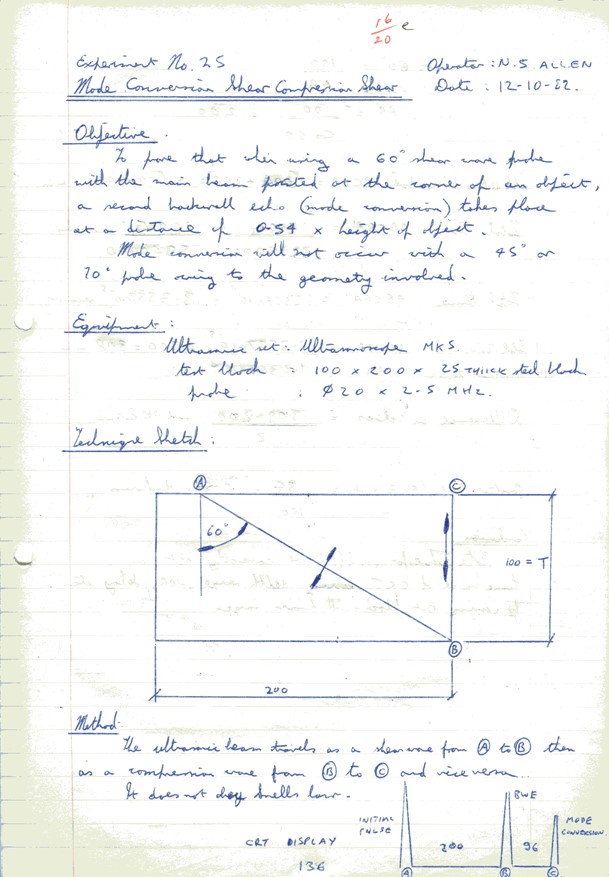 16/20 e
Experiment No. 25 Operator : N.S ALLEN
Mode Conversion Shear Compression Shear Date : 12-10-82.
Objective.
To prove that when using a 60° shear wave probe
with the main beam pointed at the corner of an object,
a second backwall echo (mode conversion) takes place
at a distance of 0.54 x height of object.
Mode conversion will not occur with a 45° or
70° probe owing to the geometry involved.
Equipment :
Ultrasonic set : Ultrasonoscope MKS.
test block : 100 x 200 x 25 THIICK steel block
probe : Ø 20 x 2-5 MHz.
Technique Sketch :
A C
60°
100 = T
B
200
Method.
The ultrasonic beam travels as a shear wave from A to B then
as a compression wave from B to C and vice versa.
It does not obey Snells law.
INITIAL PULSE BWE MODE CONVERSION.
CRT DISPLAY 200 96
136 A B C